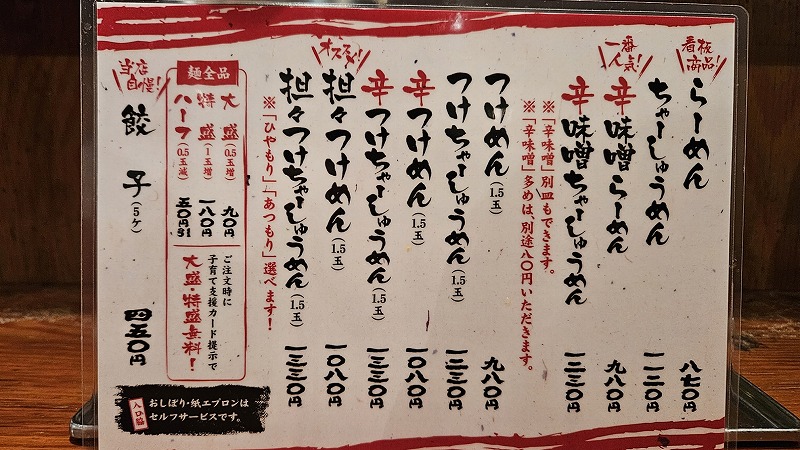 看板商品！
らーめん 八七〇円
ちゃーしゅうめん 一一二〇円
一番人気！
辛味噌らーめん 九八〇円
辛味噌ちゃーしゅうめん 一二三〇円
※「辛味噌」別皿もできます。
※「辛味噌」多めは、別途八〇円いただきます。
つけめん（1.5玉） 九八〇円
つけちゃーしゅうめん（1.5玉） 一二三〇円
辛つけめん（1.5玉） 一〇八〇円
辛つけちゃーしゅうめん（1.5玉） 一三三〇円
オススメ！
担々つけめん（1.5玉） 一〇八〇円
担々つけちゃーしゅうめん（1.5玉） 一三三〇円
※「ひやもり」「あつもり」選べます！
麺全品
大盛（0.5玉増） 九〇円
特盛（1玉増） 一八〇円
ハーフ（0.5玉減） 五〇円引
ご注文時に
子育て支援カード提示で
大盛・特盛無料！
当店自慢！
餃子（5ケ） 四五〇円
入口脇
おしぼり・紙エプロンは
セルフサービスです。